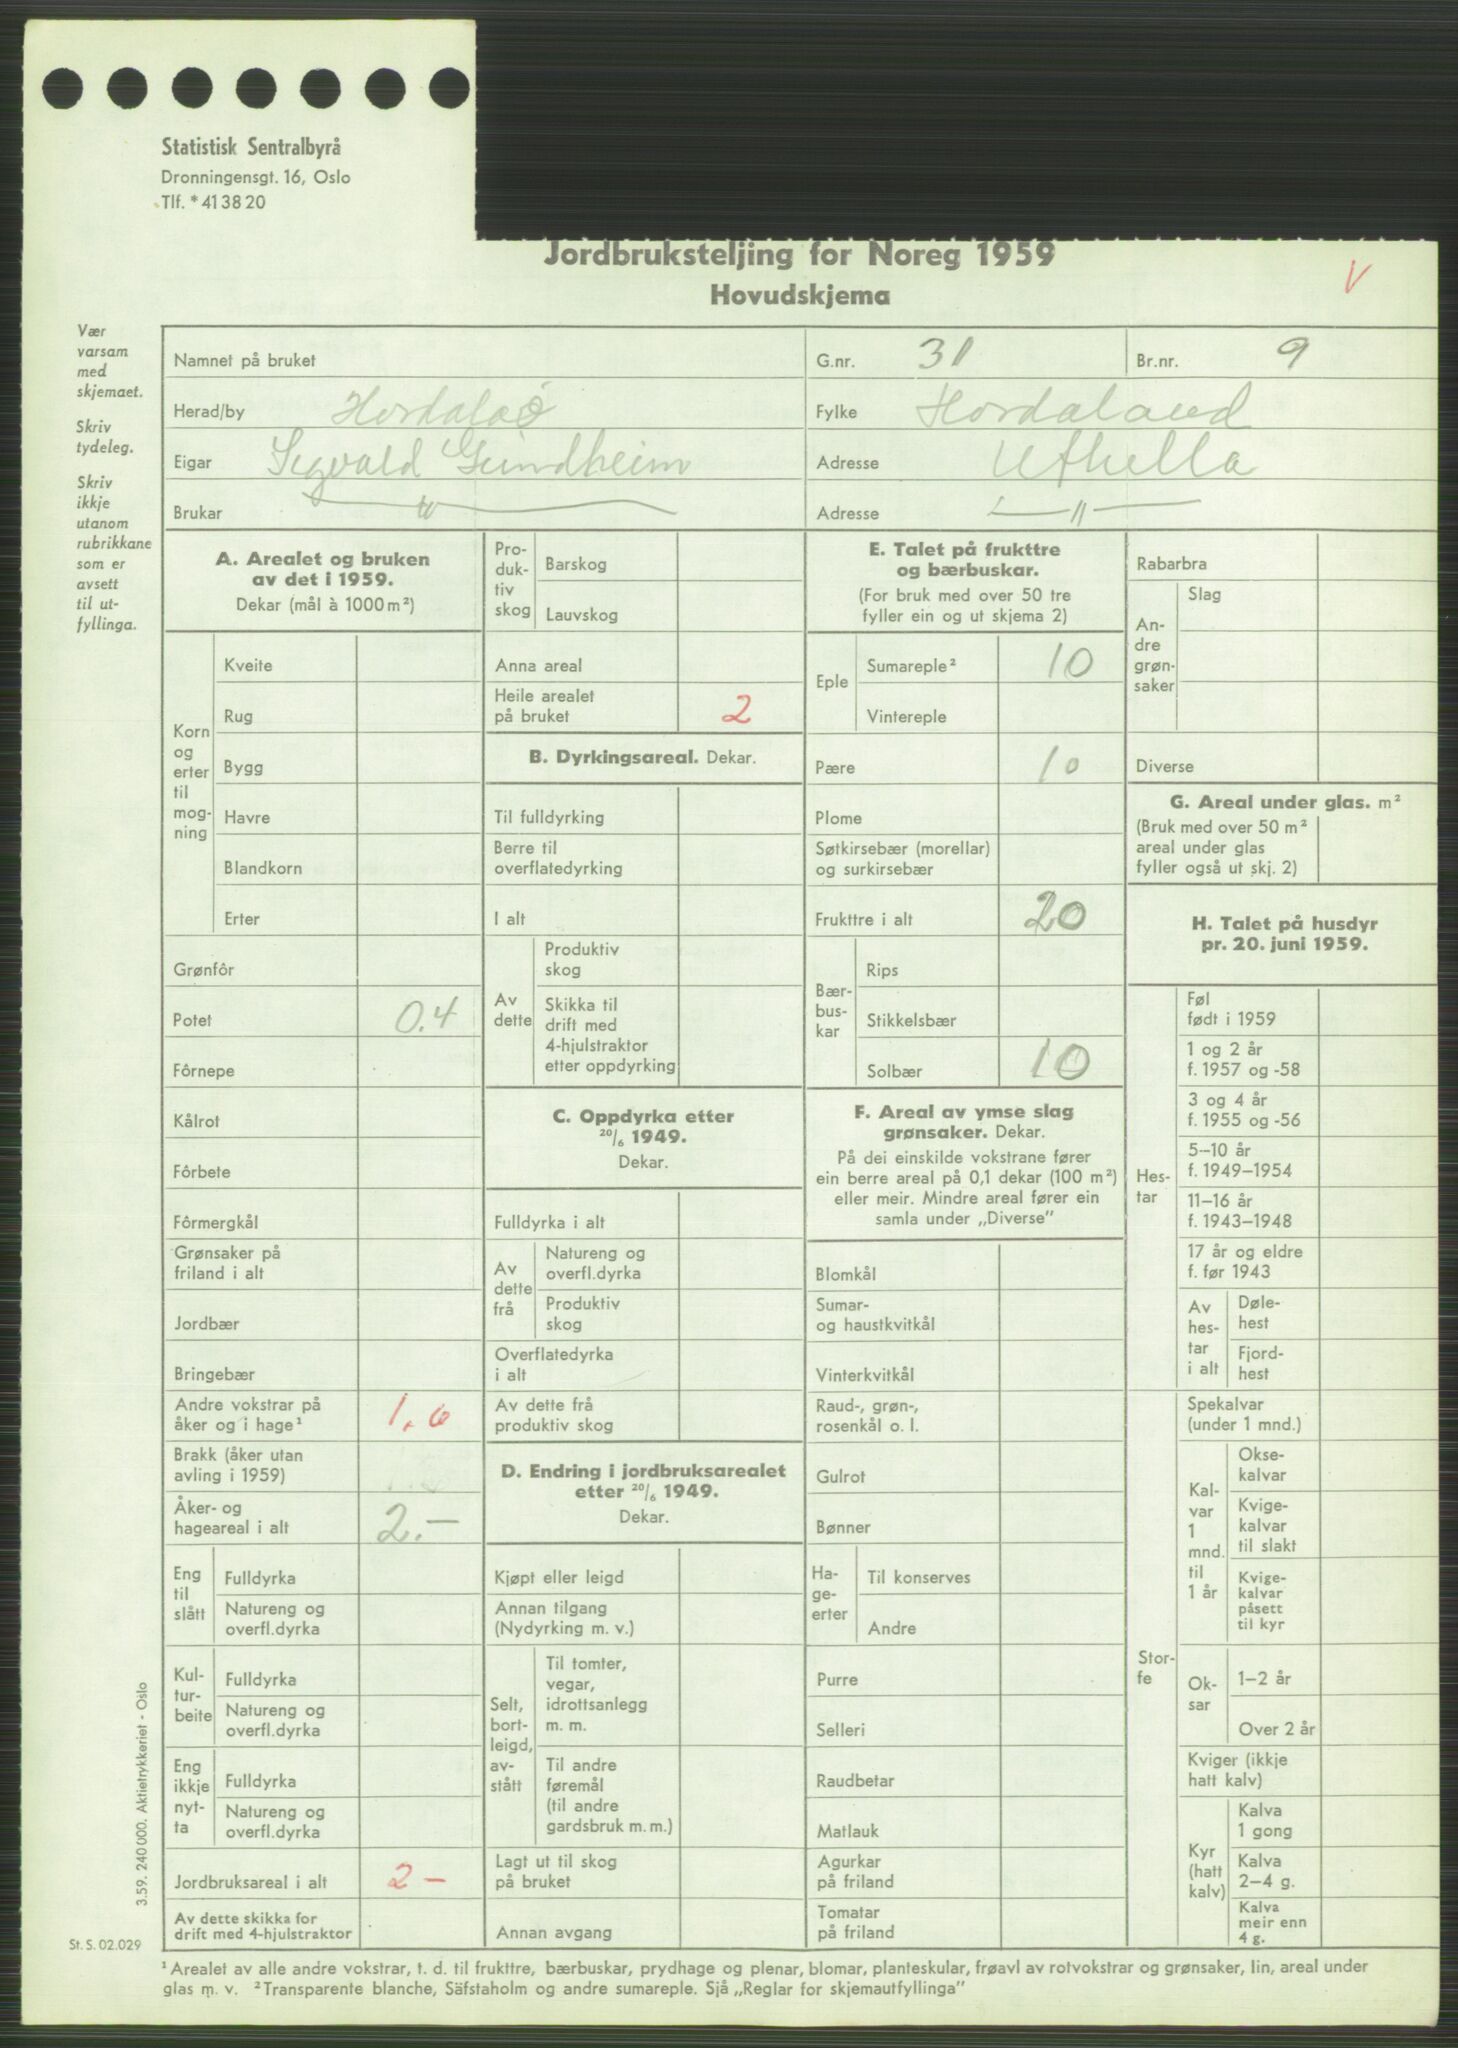 Statistisk Sentralbyrå
Dronningensgt. 16, Oslo
Tlf. * 41 38 20
Jordbruksteljing for Noreg 1959
Hovudskjema
V
Vær
varsam
med
skjemaet.
Skriv
tydeleg.
Skriv
ikkje
utanom
rubrikkane
som er
avsett
til ut-
fyllinga.
Namnet på bruket
G.nr. 31
Br.nr. 9
Herad/by
Fylke Hordaland
Eigar Sigvald Grindheim
Adresse Uthella
Brukar — " —
Adresse — " —
A. Arealet og bruken
av det i 1959.
Dekar (mål à 1000 m²)
Korn
og
erter
til
mog-
ning
Kveite
Rug
Bygg
Havre
Blandkorn
Erter
Grønfôr
Potet 0.4
Fôrnepe
Kålrot
Fôrbete
Fôrmergkål
Grønsaker på
friland i alt
Jordbær
Bringebær
Andre vokstrar på
åker og i hage¹ 1.6
Brakk (åker utan
avling i 1959)
Åker- og
hageareal i alt 2.—
Eng
til
slått
Fulldyrka
Natureng og
overfl.dyrka
Kul-
tur-
beite
Fulldyrka
Natureng og
overfl.dyrka
Eng
ikkje
nyt-
ta
Fulldyrka
Natureng og
overfl.dyrka
Jordbruksareal i alt 2 —
Av dette skikka for
drift med 4-hjulstraktor
Pro-
duk-
tiv
skog
Barskog
Lauvskog
Anna areal
Heile arealet
på bruket 2
B. Dyrkingsareal. Dekar.
Til fulldyrking
Berre til
overflatedyrking
I alt
Av
dette
Produktiv
skog
Skikka til
drift med
4-hjulstraktor
etter oppdyrking
C. Oppdyrka etter
20/6 1949.
Dekar.
Fulldyrka i alt
Av
dette
frå
Natureng og
overfl.dyrka
Produktiv
skog
Overflatedyrka
i alt
Av dette frå
produktiv skog
D. Endring i jordbruksarealet
etter 20/6 1949.
Dekar.
Kjøpt eller leigd
Annan tilgang
(Nydyrking m. v.)
Selt,
bort-
leigd,
av-
stått
Til tomter,
vegar,
idrottsanlegg
m. m.
Til andre
føremål
(til andre
gardsbruk m. m.)
Lagt ut til skog
på bruket
Annan avgang
E. Talet på frukttre
og bærbuskar.
(For bruk med over 50 tre
fyller ein og ut skjema 2)
Eple
Sumareple² 10
Vintereple
Pære 10
Plome
Søtkirsebær (morellar)
og surkirsebær
Frukttre i alt 20
Bær-
bus-
kar
Rips
Stikkelsbær
Solbær 10
F. Areal av ymse slag
grønsaker. Dekar.
På dei einskilde vokstrane fører
ein berre areal på 0,1 dekar (100 m²)
eller meir. Mindre areal fører ein
samla under „Diverse"
Blomkål
Sumar-
og haustkvitkål
Vinterkvitkål
Raud-, grøn-,
rosenkål o. l.
Gulrot
Bønner
Ha-
ge-
erter
Til konserves
Andre
Purre
Selleri
Raudbetar
Matlauk
Agurkar
på friland
Tomatar
på friland
Rabarbra
An-
dre
grøn-
saker
Slag
Diverse
G. Areal under glas. m²
(Bruk med over 50 m²
areal under glas
fyller også ut skj. 2)
H. Talet på husdyr
pr. 20. juni 1959.
Hes-
tar
Føl
født i 1959
1 og 2 år
f. 1957 og -58
3 og 4 år
f. 1955 og -56
5–10 år
f. 1949–1954
11–16 år
f. 1943–1948
17 år og eldre
f. før 1943
Av
hes-
tar
i alt
Døle-
hest
Fjord-
hest
Stor-
fe
Spekalvar
(under 1 mnd.)
Kal-
var
1
mnd.
til
1 år
Okse-
kalvar
Kvige-
kalvar
til slakt
Kvige-
kalvar
påsett
til kyr
Ok-
sar
1–2 år
Over 2 år
Kviger (ikkje
hatt kalv)
Kyr
(hatt
kalv)
Kalva
1 gong
Kalva
2–4 g.
Kalva
meir enn
4 g.
3.59. 240 000. Aktietrykkeriet - Oslo
St. S. 02.029
¹ Arealet av alle andre vokstrar, t. d. til frukttre, bærbuskar, prydhage og plenar, blomar, planteskular, frøavl av rotvokstrar og grønsaker, lin, areal under
glas m. v. ² Transparente blanche, Säfstaholm og andre sumareple. Sjå „Reglar for skjemautfyllinga"